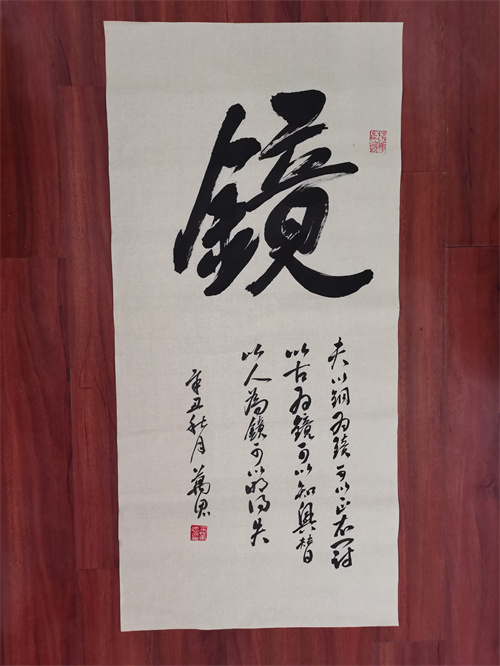 鏡
夫以铜为镜可以正衣冠
以古为鏡可以知興替
以人為鏡可以明得失
辛丑秋月